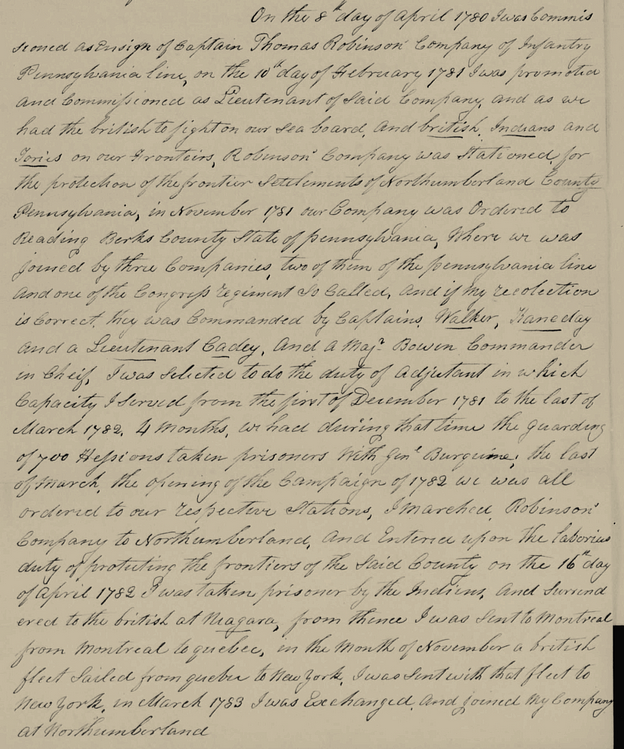 On the 8th day of April 1780 I was Commis
sioned as Ensign of Captain Thomas Robinson' Company of Infantry
Pennsylvania line, on the 10th day of February 1781 I was promoted
and Commissioned as Lieutenant of Said Company, and as we
had the british to fight on our Sea board, and british, Indians and
Tories on our Frontiers, Robinson' Company was Stationed for
the protection of the frontier Settlements of Northumberland County
Pennsylvania, in November 1781 our Company was Ordered to
Reading Berks County State of pennsylvania, Where we was
joined by three Companies, two of them of the pennsylvania line
and one of the Congress regiment So Called, and if My recolection
is Correct, they was Commanded by Captains Walker, Kanaday
and a Lieutenant Cadey, And a Majr Bowen Commander
in Cheif, I was selected to do the duty of Adjutant in which
Capacity I Served from the first of December 1781 to the last of
March 1782, 4 Months, we had during that time the guarding
of 700 Hessions taken prisoners With Genl Burguine; the last
of March, the opening of the Campaign of 1782 we was all
ordered to our respective Stations, I Marched Robinson'
Company to Northumberland, And Entered upon the laborius
duty of protecting the frontiers of the Said County on the 16th day
of April 1782 I was taken prisoner by the Indians, And Surrend
ered to the british at Niagara, from thence I was Sent to Montreal
from Montreal to quebec, in the Month of November a british
fleet Sailed from quebec to New York, I was Sent with that fleet to
New York, in March 1783 I was Exchanged, And joined My Company
at Northumberland